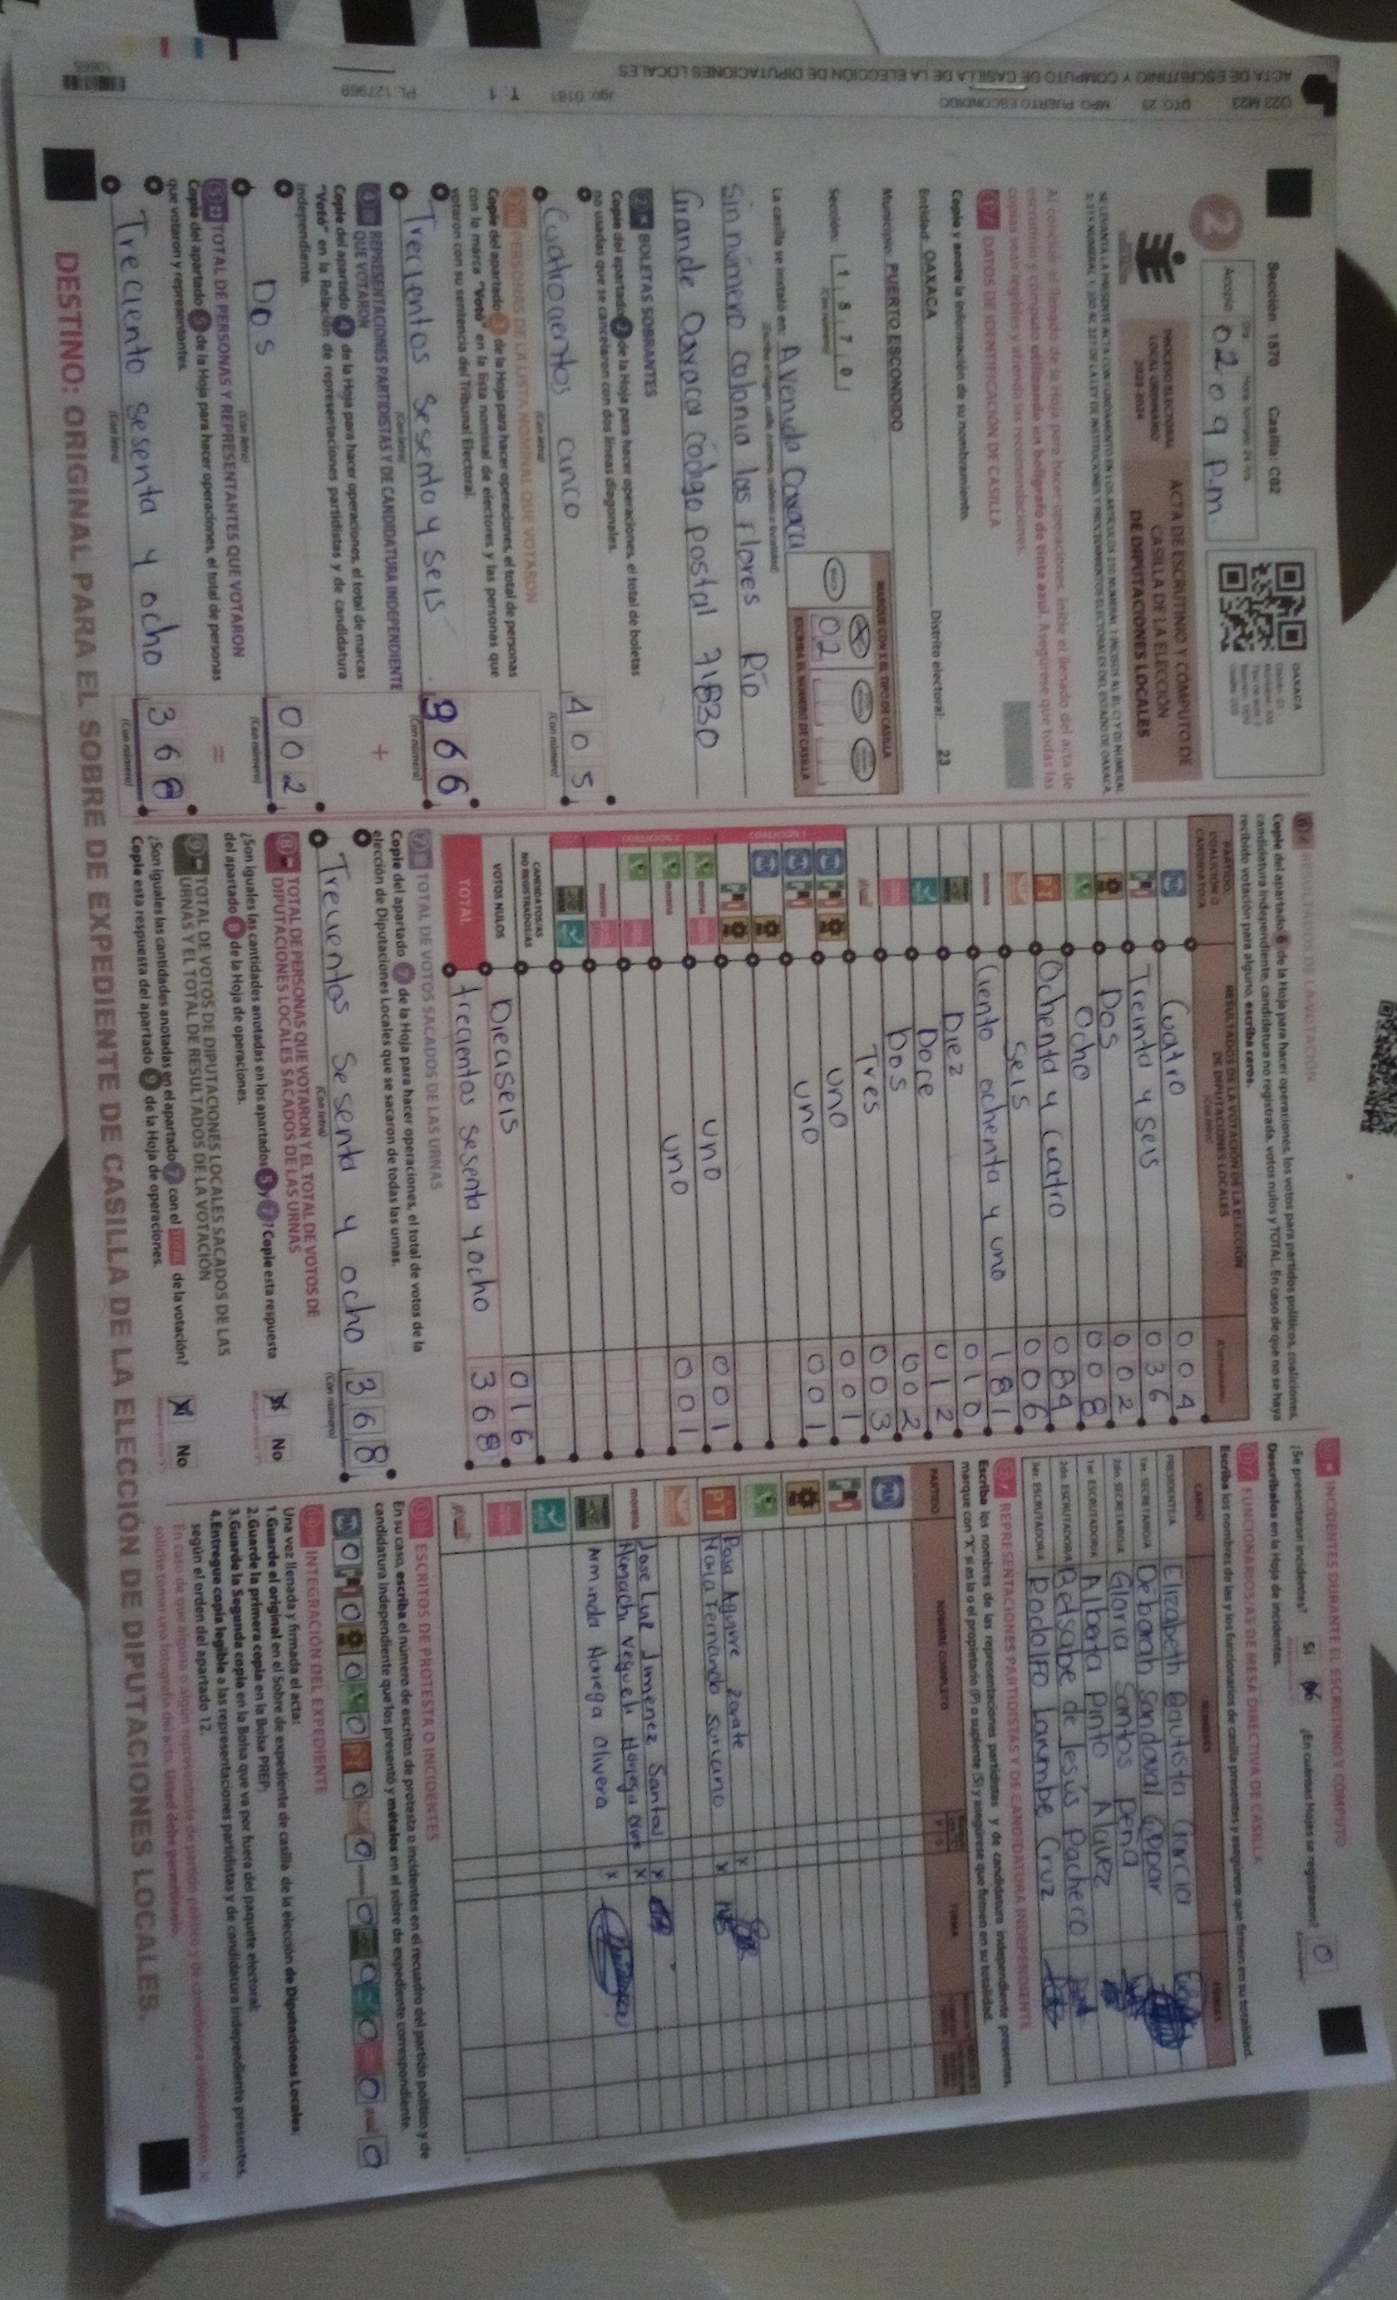 ACTA DE ESCRUTINIO Y CÓMPUTO DE CASILLA DE LA ELECCIÓN DE DIPUTACIONES LOCALES
DTO: 23 MPO: PUERTO ESCONDIDO
T: 1
PL: 127968
Sección: 1570 Casilla: C02
2
Acopio
0209 p.m.
OAXACA
PROCESO ELECTORAL
LOCAL ORDINARIO
2023-2024
ACTA DE ESCRUTINIO Y CÓMPUTO DE
CASILLA DE LA ELECCIÓN
DE DIPUTACIONES LOCALES
Al concluir el llenado de la Hoja para hacer operaciones, inicie el llenado del acta de
escrutinio y cómputo utilizando un bolígrafo de tinta azul. Asegúrese que todas las
copias sean legibles y atienda las recomendaciones.
1 DATOS DE IDENTIFICACIÓN DE CASILLA
Copie y anote la información de su nombramiento.
Entidad: OAXACA Distrito electoral: 23
Municipio: PUERTO ESCONDIDO
Sección: 1 5 7 0
MARQUE CON X EL TIPO DE CASILLA
ESCRIBA EL NÚMERO DE CASILLA
02
La casilla se instaló en: Avenida Oaxaca
sin número colonia las Flores Río
Grande Oaxaca código postal 71830
2 BOLETAS SOBRANTES
Copie del apartado 2 de la Hoja para hacer operaciones, el total de boletas
no usadas que se cancelaron con dos líneas diagonales.
Cuatrocientos cinco 405
(Con letra) (Con número)
3 PERSONAS DE LA LISTA NOMINAL QUE VOTARON
Copie del apartado 3 de la Hoja para hacer operaciones, el total de personas
con la marca "Votó" en la lista nominal de electores y las personas que
votaron con su sentencia del Tribunal Electoral.
Trecientos sesenta y seis 366
(Con letra) (Con número)
+
4 REPRESENTACIONES PARTIDISTAS Y DE CANDIDATURA INDEPENDIENTE
QUE VOTARON
Copie del apartado 4 de la Hoja para hacer operaciones, el total de marcas
"Votó" en la Relación de representaciones partidistas y de candidatura
independiente.
Dos 002
(Con letra) (Con número)
=
5 TOTAL DE PERSONAS Y REPRESENTANTES QUE VOTARON
Copie del apartado 5 de la Hoja para hacer operaciones, el total de personas
que votaron y representantes.
Treciento sesenta y ocho 368
(Con letra) (Con número)
6 RESULTADOS DE LA VOTACIÓN
Copie del apartado 6 de la Hoja para hacer operaciones, los votos para partidos políticos, coaliciones,
candidatura independiente, candidatura no registrada, votos nulos y TOTAL. En caso de que no se haya
recibido votación para alguno, escriba ceros.
PARTIDO, COALICIÓN O CANDIDATURA
RESULTADOS DE LA VOTACIÓN DE LA ELECCIÓN
DE DIPUTACIONES LOCALES
Cuatro 004
Treinta y seis 036
Dos 002
ocho 008
PT Ochenta y cuatro 084
seis 006
morena Ciento ochenta y uno 181
Diez 010
Doce 012
Dos 002
Tres 003
COALICIÓN 1
uno 001
uno 001
COALICIÓN 2
uno 001
uno 001
CANDIDATOS/AS
NO REGISTRADOS/AS
VOTOS NULOS Dieaseis 016
TOTAL trecientos sesenta y ocho 368
7 TOTAL DE VOTOS SACADOS DE LAS URNAS
Copie del apartado 7 de la Hoja para hacer operaciones, el total de votos de la
elección de Diputaciones Locales que se sacaron de todas las urnas.
Trecientos sesenta y ocho 368
(Con letra) (Con número)
8 TOTAL DE PERSONAS QUE VOTARON Y EL TOTAL DE VOTOS DE
DIPUTACIONES LOCALES SACADOS DE LAS URNAS
¿Son iguales las cantidades anotadas en los apartados 5 y 7? Copie esta respuesta
del apartado 8 de la Hoja de operaciones.
No
9 TOTAL DE VOTOS DE DIPUTACIONES LOCALES SACADOS DE LAS
URNAS Y EL TOTAL DE RESULTADOS DE LA VOTACIÓN
¿Son iguales las cantidades anotadas en el apartado 7 con el TOTAL de la votación?
Copie esta respuesta del apartado 9 de la Hoja de operaciones.
No
INCIDENTES DURANTE EL ESCRUTINIO Y CÓMPUTO
¿Se presentaron incidentes? Sí No ¿En cuántas Hojas se registraron? 0
Descríbalos en la Hoja de incidentes.
FUNCIONARIOS/AS DE MESA DIRECTIVA DE CASILLA
Escriba los nombres de las y los funcionarios de casilla presentes y asegúrese que firmen en su totalidad.
CARGO NOMBRES FIRMAS
PRESIDENTE/A Elizabeth Bautista Garcia
1er. SECRETARIO/A Deborah Sandoval
2do. SECRETARIO/A Gloria Santos Peña
1er. ESCRUTADOR/A Alberta Pinto Alavez
2do. ESCRUTADOR/A Betsabe de Jesús Pacheco
3er. ESCRUTADOR/A Rodolfo Larumbe Cruz
REPRESENTACIONES PARTIDISTAS Y DE CANDIDATURA INDEPENDIENTE
Escriba los nombres de las representaciones partidistas y de candidatura independiente presentes,
marque con "X" si es la o el propietario (P) o suplente (S) y asegúrese que firmen en su totalidad.
PARTIDO NOMBRE COMPLETO FIRMA
PT Rosa Aguirre Zarate X
Fernando X
Jose Luis Jimenez Santos X
morena X
Arminda Noriega Olivera X
ESCRITOS DE PROTESTA O INCIDENTES
En su caso, escriba el número de escritos de protesta o incidentes en el recuadro del partido político y de
candidatura independiente que los presentó y métalos en el sobre de expediente correspondiente.
0 0 0 0 PT 0 0 0 0 0 0 0
INTEGRACIÓN DEL EXPEDIENTE
Una vez llenada y firmada el acta:
1. Guarde el original en el Sobre de expediente de casilla de la elección de Diputaciones Locales.
2. Guarde la primera copia en la Bolsa PREP.
3. Guarde la Segunda copia en la Bolsa que va por fuera del paquete electoral.
4. Entregue copia legible a las representaciones partidistas y de candidatura independiente presentes,
según el orden del apartado 12.
DESTINO: ORIGINAL PARA EL SOBRE DE EXPEDIENTE DE CASILLA DE LA ELECCIÓN DE DIPUTACIONES LOCALES.